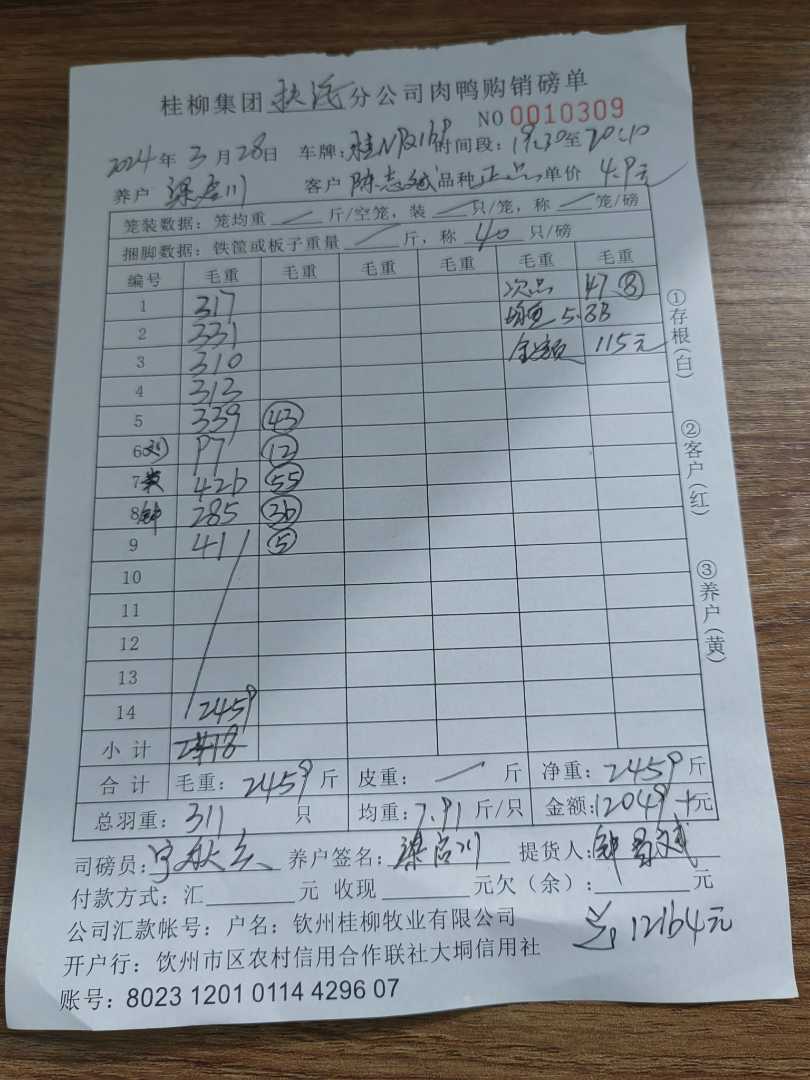 桂柳集团 扶滘 分公司肉鸭购销磅单
NO 0010309
2024年3月28日 车牌: 时间段:19:30至20:10
养户 梁启川 客户 陈志斌 品种 正品 单价 4.9元
笼装数据:笼均重 / 斤/空笼,装 / 只/笼,称 / 笼/磅
捆脚数据:铁筐或板子重量 / 斤,称 40 只/磅
编号 毛重 毛重 毛重 毛重 毛重 毛重
1 317 次品 47 ⑧
2 331 5.8B
3 310 金额 115元
4 313
5 339 (43)
6刘 97 (12)
7黄 426 (55)
8钟 285 (36)
9 41 (5)
10
11
12
13
14 2459
小计
合计 毛重:2459斤 皮重: / 斤 净重:2459斤
总羽重:311只 均重:7.91斤/只 金额:12049元
司磅员: 养户签名:梁启川 提货人:
付款方式:汇 元 收现 元欠(余): 元
公司汇款帐号:户名:钦州桂柳牧业有限公司
12164元
开户行:钦州市区农村信用合作联社大垌信用社
账号:8023 1201 0114 4296 07
①存根(白)
②客户(红)
③养户(黄)